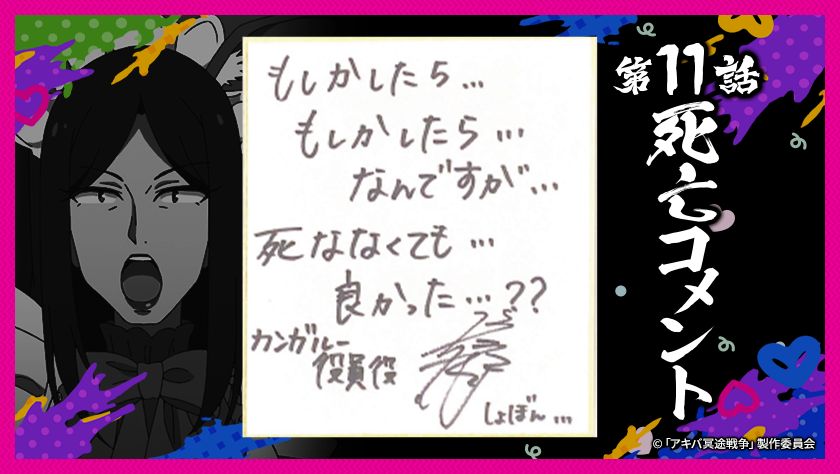 第11話
死亡コメント
もしかしたら…
もしかしたら…
なんですが…
死ななくても…
良かった…??
カンガルー
役員役
しょぼん…
©「アキバ冥途戦争」製作委員会